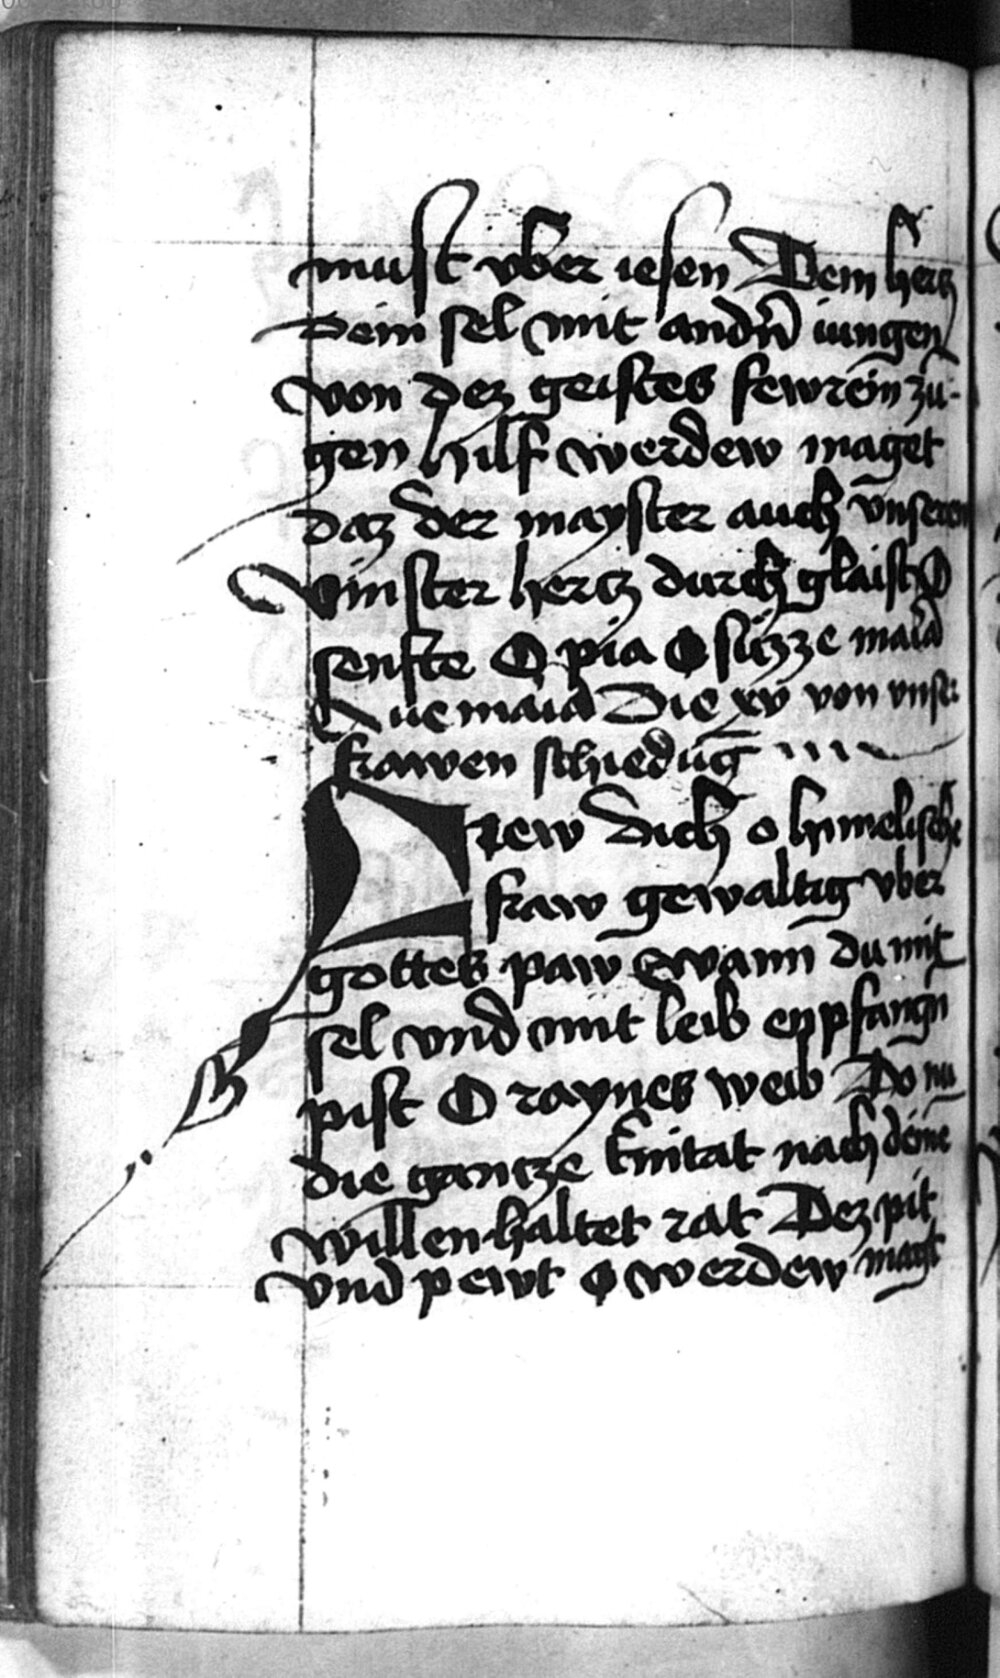 must vber iesen Dein hertz
dein sel mit andrn iungen
von dez geistes fewrein zu-
gen hilf werdew maget
daz der mayster auch vnseren
vinster hertz durch glaist O
senfte O pia O süzze maria
Aue maria Die xv von vnser
frawen schiedūg
Frew dich o himelische
fraw gewaltig vber
gottes paw Swann du mit
sel vnd mit leib enpfangn
pist O raynes weib Do nu
die gantze trinitat nach deinē
willen haltet rat Dez pit
vnd pewt o werdew magt